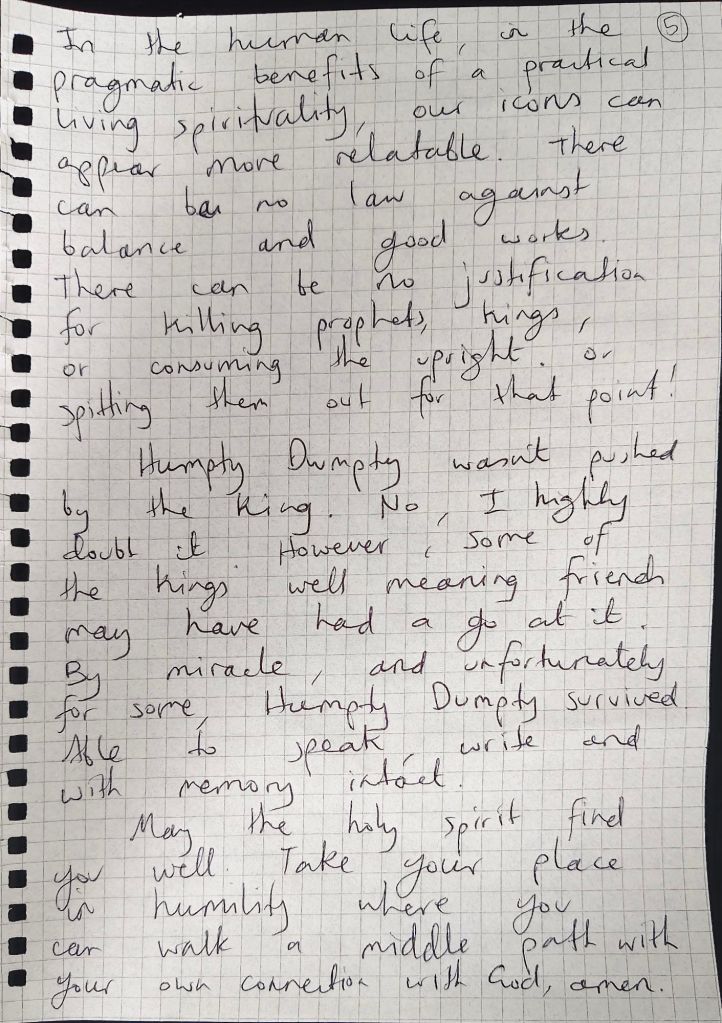 In the human life, in the ⑤
pragmatic benefits of a practical
living spirituality, our icons can
appear more relatable. There
can be no law against
balance and good works.
There can be no justification
for killing prophets, kings,
or consuming the upright. or
spitting them out for that point!
Humpty Dumpty wasn't pushed
by the King. No, I highly
doubt it. However, some of
the kings' well meaning friends
may have had a go at it.
By miracle, and unfortunately
for some, Humpty Dumpty survived.
Able to speak, write and
with memory intact.
May the holy spirit find
you well. Take your place
in humility where you
can walk a middle path with
your own connection with God, amen.